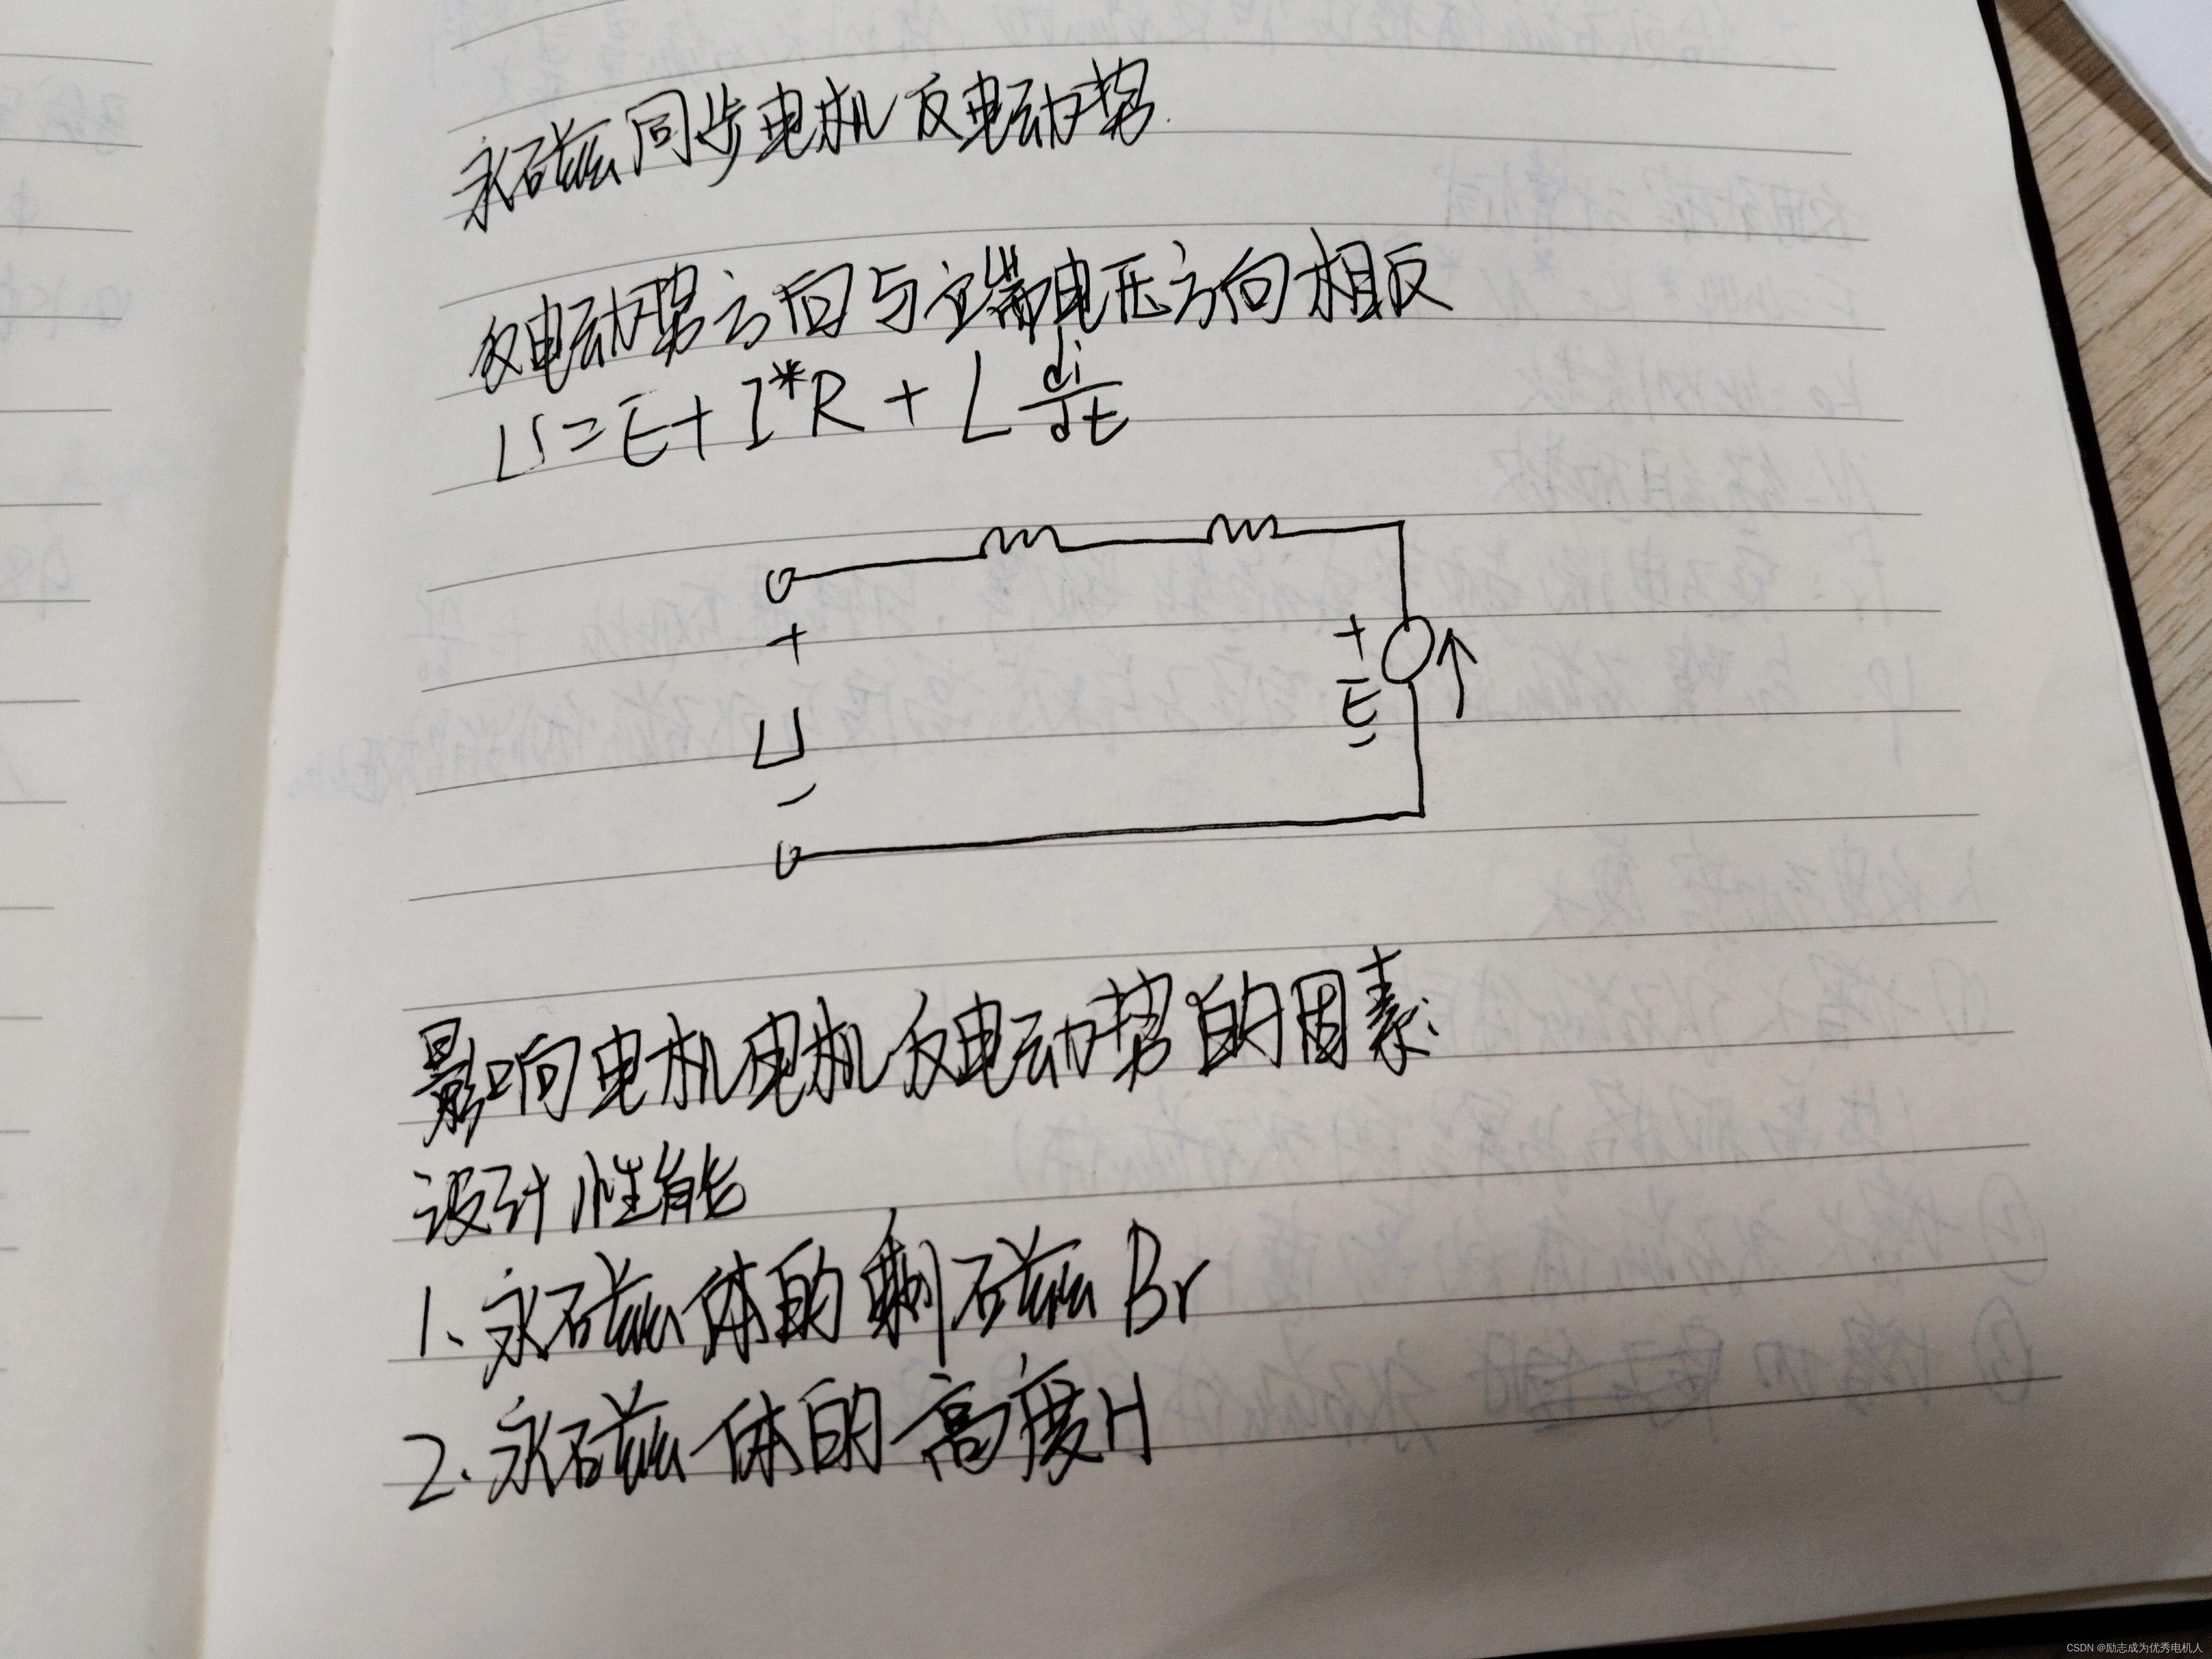 永磁同步电机反电动势.
反电动势方向与主端电压方向相反
U=E+I*R+L di/dt
+
U
-
+
E
-
影响电机电机反电动势的因素:
设计性能
1、永磁体的剩磁Br
2.永磁体的高度H
CSDN @励志成为优秀电机人